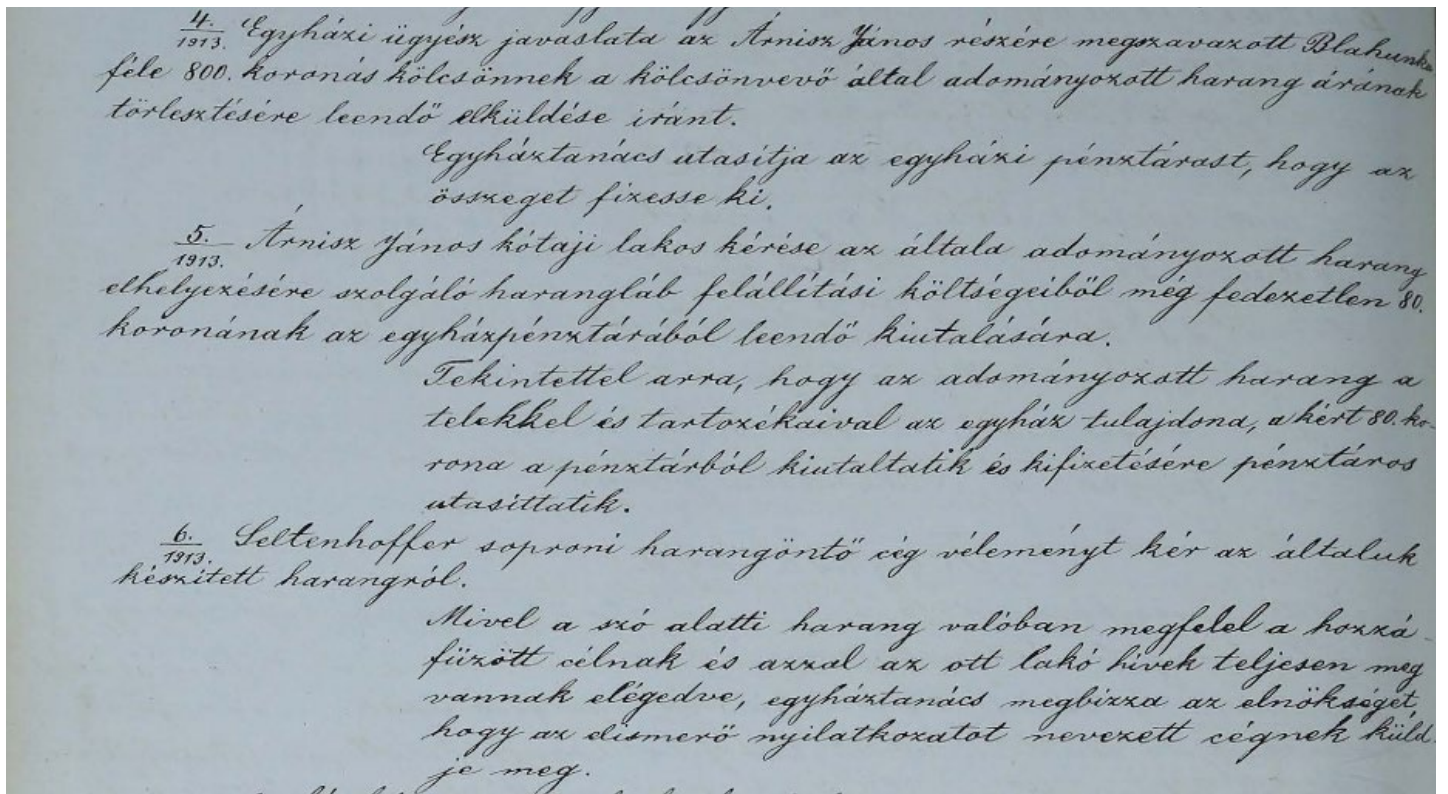 4./1913. Egyházi ügyész javaslata az Árnisz János részére megszavazott Blahunka
féle 800. koronás kölcsönnek a kölcsönvevő által adományozott harang árának
törlesztésére leendő elküldése iránt.
Egyháztanács utasítja az egyházi pénztárost, hogy az
összeget fizesse ki.
5./1913. Árnisz János kótaji lakos kérése az általa adományozott harang
elhelyezésére szolgáló harangláb felállítási költségeiből még fedezetlen 80.
koronának az egyházpénztárából leendő kiutalására.
Tekintettel arra, hogy az adományozott harang a
telekkel és tartozékaival az egyház tulajdona, a kért 80. ko-
rona a pénztárból kiutaltatik és kifizetésére pénztáros
utasíttatik.
6./1913. Seltenhoffer soproni harangöntő cég véleményt kér az általuk
készített harangról.
Mivel a szó alatti harang valóban megfelel a hozzá-
fűzött célnak és azzal az ott lakó hívek teljesen meg
vannak elégedve, egyháztanács megbizza az elnökséget,
hogy az elismerő nyilatkozatot nevezett cégnek küld-
je meg.